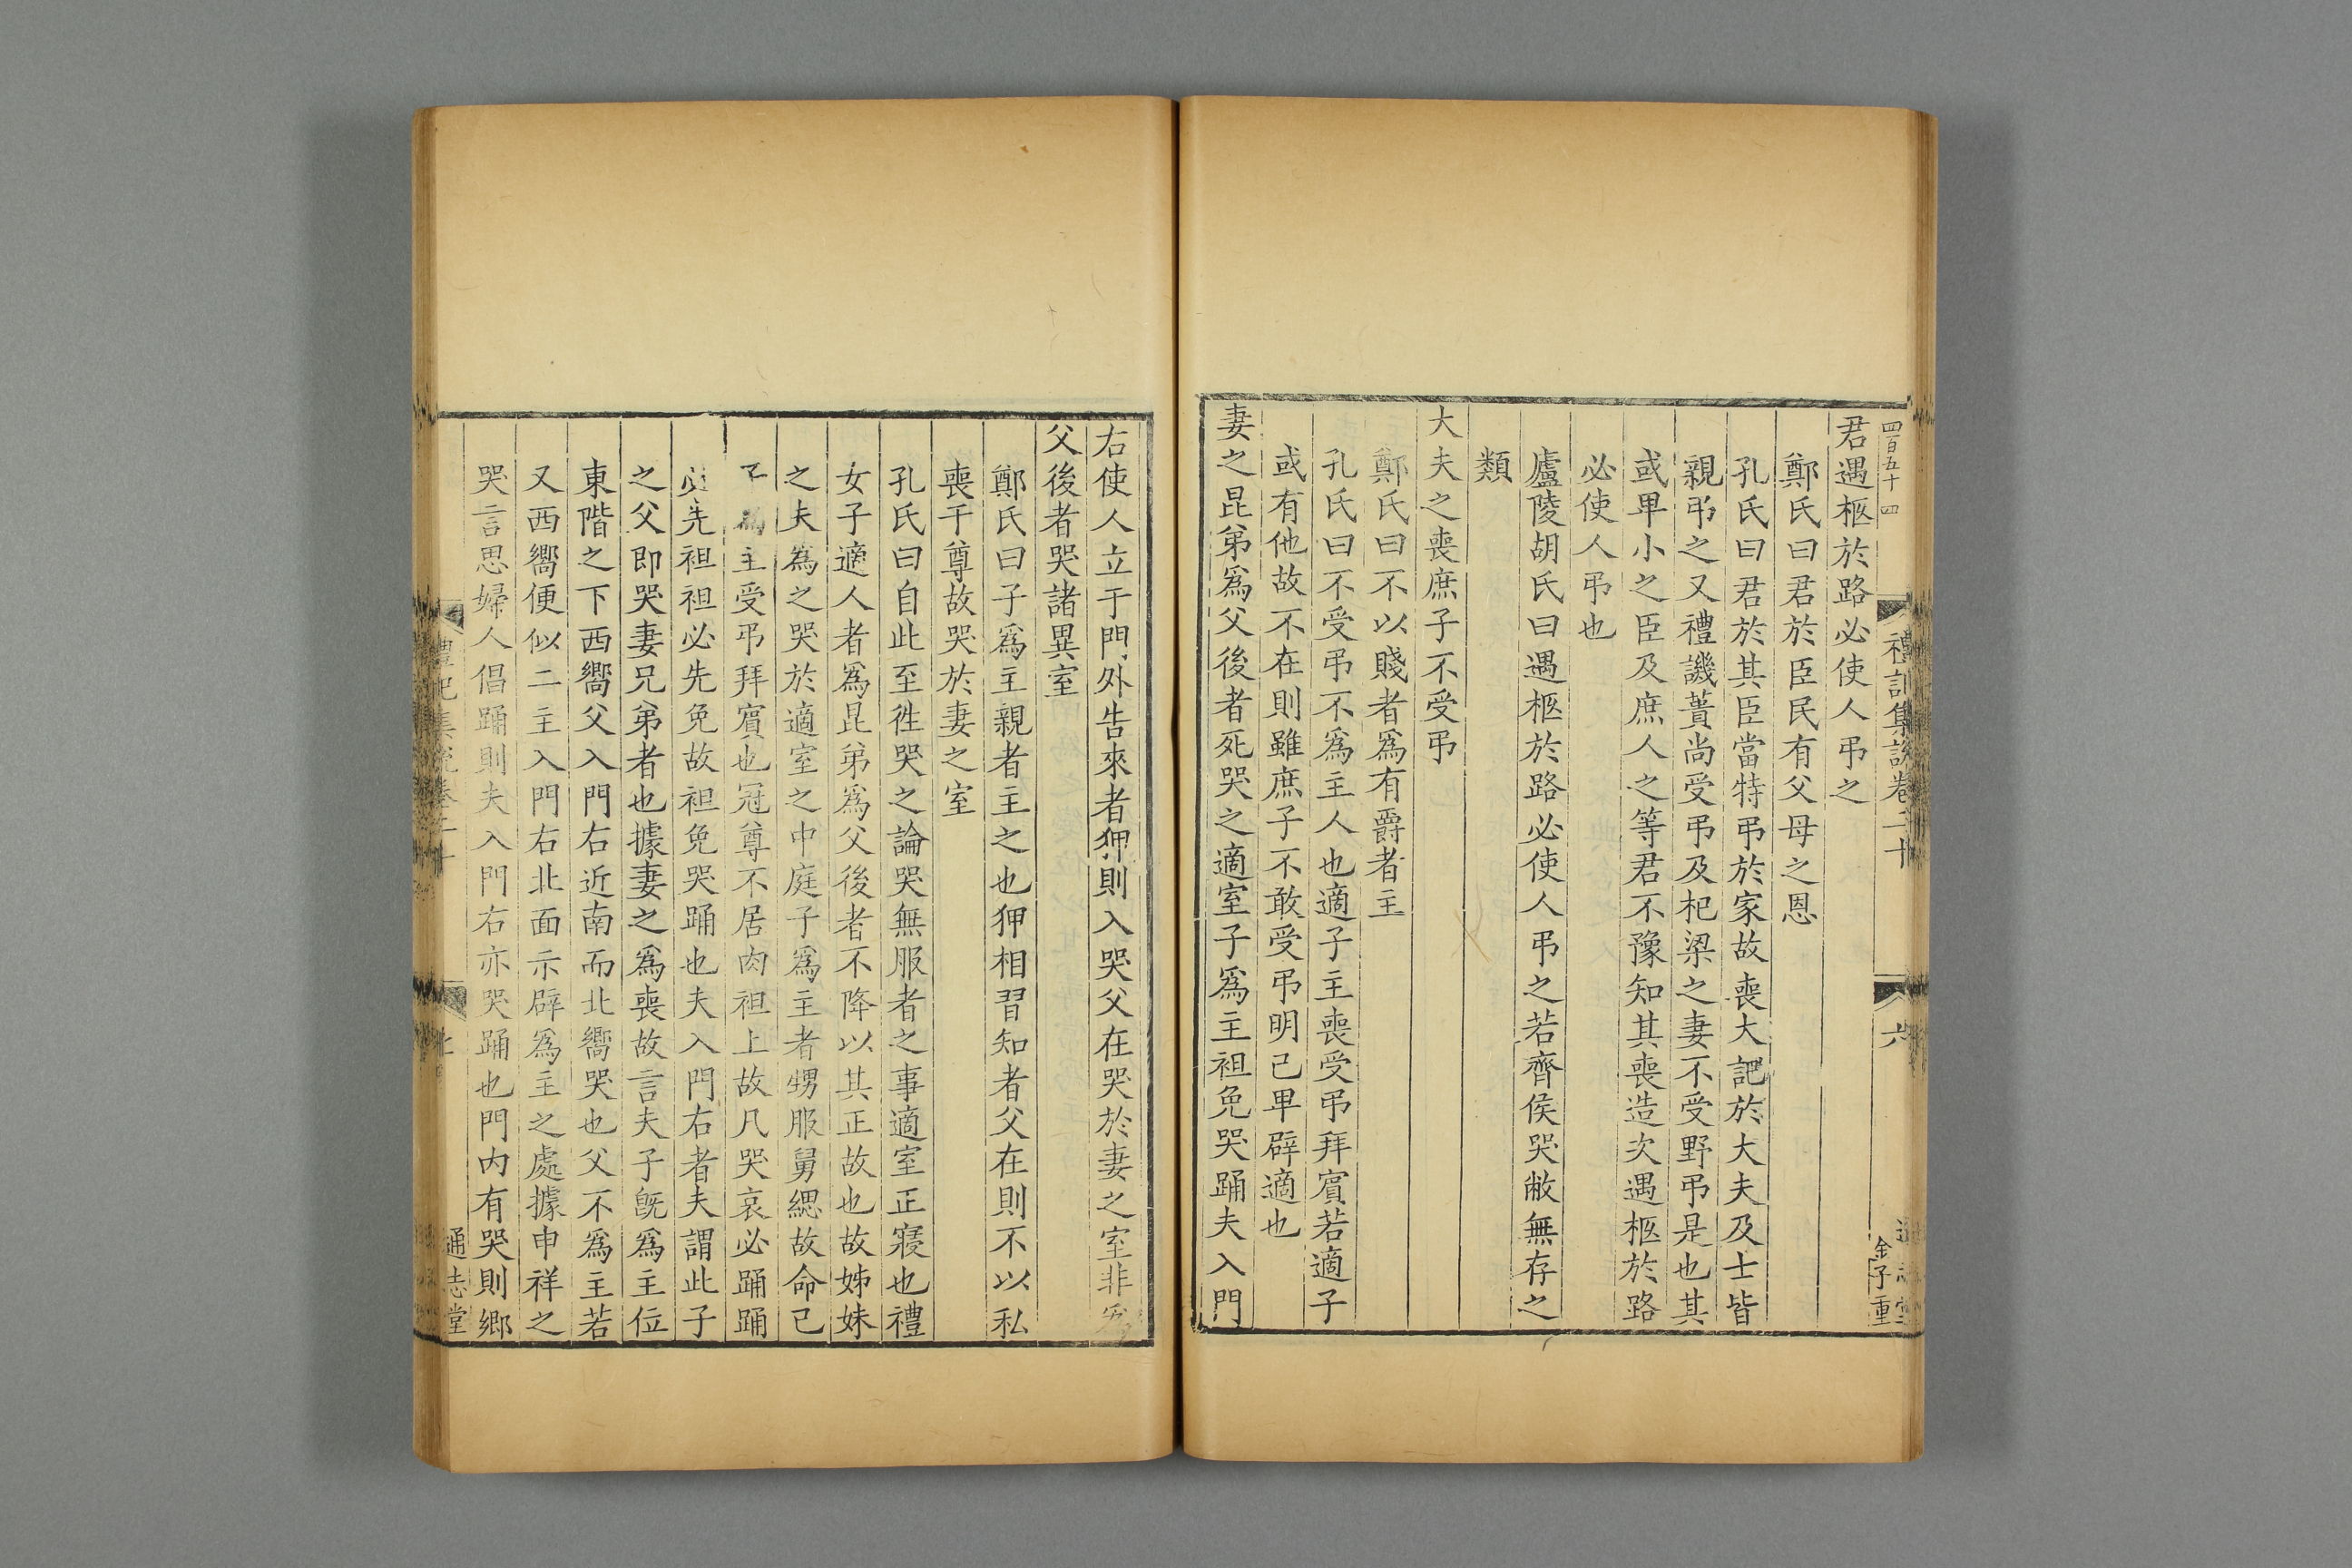 四百五十四
禮記集說卷二十
六
金子重
君遇柩於路必使人弔之
鄭氏曰君於臣民有父母之恩
孔氏曰君於其臣當特弔於家故喪大記於大夫及士皆
親弔之又禮譏蕢尚受弔及杞梁之妻不受野弔是也其
或卑小之臣及庶人之等君不豫知其喪造次遇柩於路
必使人弔也
廬陵胡氏曰遇柩於路必使人弔之若齊侯哭敝無存之
類
大夫之喪庶子不受弔
鄭氏曰不以賤者爲有爵者主
孔氏曰不受弔不爲主人也適子主喪受弔拜賓若適子
或有他故不在則雖庶子不敢受弔明己卑辟適也
妻之昆弟爲父後者死哭之適室子爲主袒免哭踊夫入門
右使人立于門外告來者狎則入哭父在哭於妻之室非爲
父後者哭諸異室
鄭氏曰子爲主親者主之也狎相習知者父在則不以私
喪干尊故哭於妻之室
孔氏曰自此至徃哭之論哭無服者之事適室正寢也禮
女子適人者爲昆弟爲父後者不降以其正故也故姊妹
之夫爲之哭於適室之中庭子爲主者甥服舅緦故命己
子爲主受弔拜賓也冠尊不居肉袒上故凡哭哀必踊踊
必先袒袒必先免故袒免哭踊也夫入門右者夫謂此子
之父即哭妻兄弟者也據妻之爲喪故言夫子旣爲主位
東階之下西嚮父入門右近南而北嚮哭也父不爲主若
又西嚮便似二主入門右北面示辟爲主之處據申祥之
哭言思婦人倡踊則夫入門右亦哭踊也門内有哭則鄉
禮記集說卷二十
七
通志堂